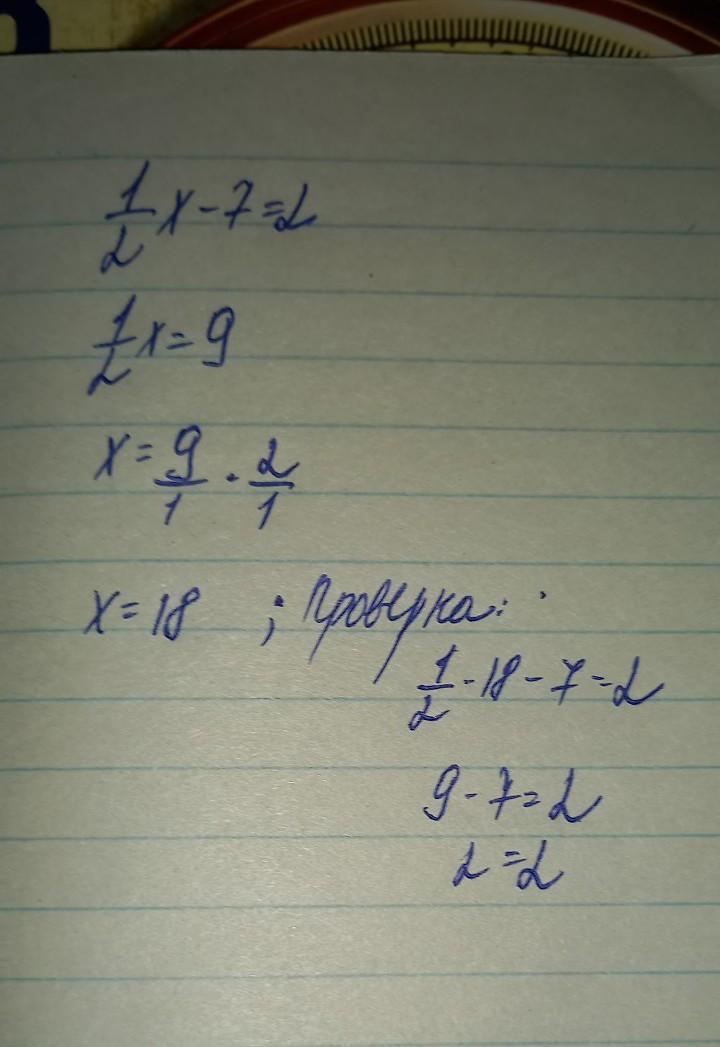 1/2 x - 7 = 2
1/2 x = 9
x = 9/1 · 2/1
x = 18 ; Проверка:
1/2 · 18 - 7 = 2
9 - 7 = 2
2 = 2